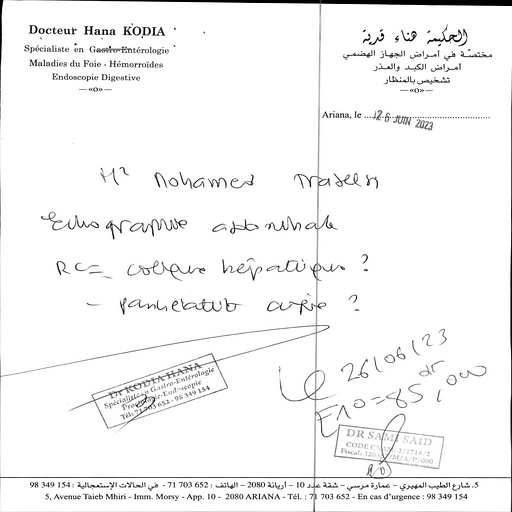 Docteur Hana KODIA
Spécialiste en Gastro-Entérologie
Maladies du Foie - Hémorroïdes
Endoscopie Digestive
—«o»—
الحكيمة هناء قدية
مختصّة في أمراض الجهاز الهضمي
أمراض الكبد والعذر
تشخيص بالمنظار
—«o»—
Ariana, le ... 26 JUIN 2023
Mr Mohamed
Echographie abdominale
RC = colique hépatique ?
- pancréatite aigüe ?
Dr KODIA HANA
Spécialiste en Gastro-Entérologie
Proctologie-Endoscopie
Tél: 71 703 652 - 98 349 154
Le 26/06/23
E10 = 85 dt, 000
DR SAMI SAID
5. شارع الطيب المهيري – عمارة مرسي – شقة عدد 10 – أريانة 2080 – الهاتف : 652 703 71 - في الحالات الإستعجالية : 154 349 98
5, Avenue Taieb Mhiri - Imm. Morsy - App. 10 - 2080 ARIANA - Tél. : 71 703 652 - En cas d'urgence : 98 349 154